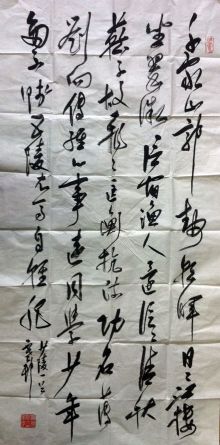 千家山郭靜朝暉日々江樓
坐翠微信宿漁人還泛々清秋
燕子故飛々匡衡抗疏功名薄
劉向傳經心事違同學少年
多不賤五陵衣馬自輕肥